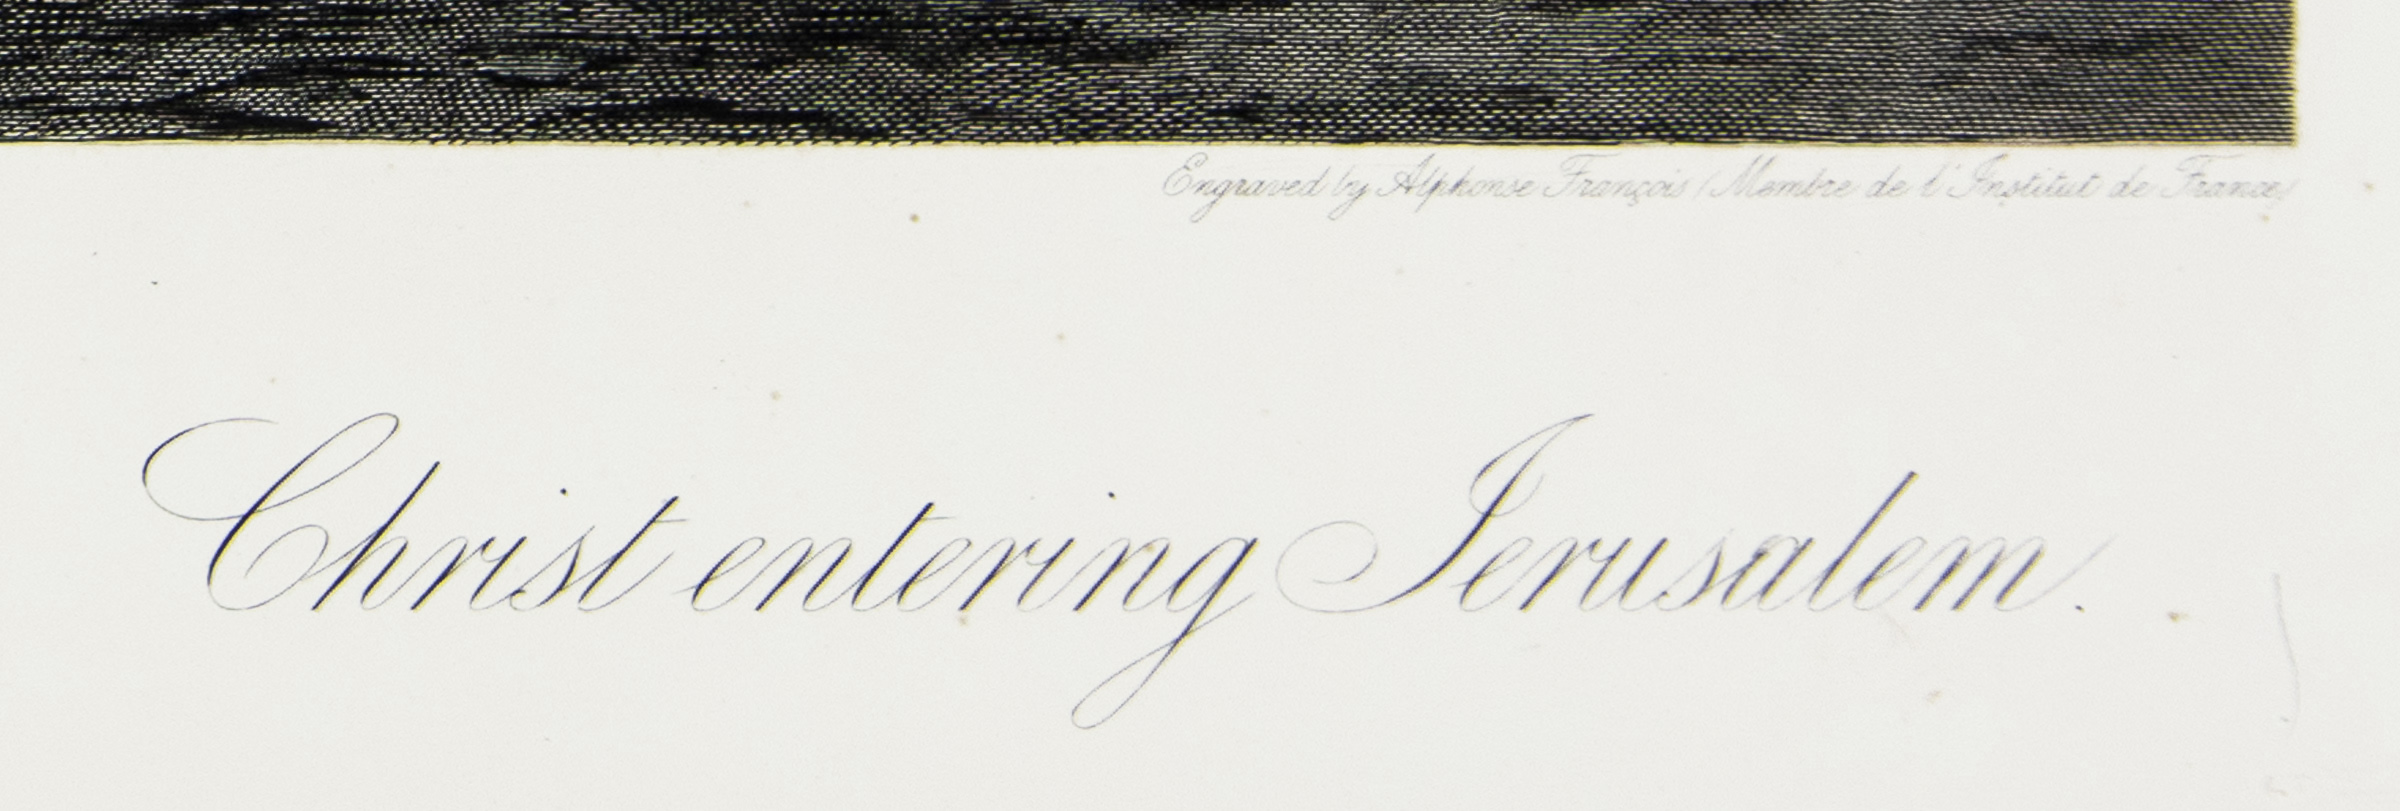 Engraved by Alphonse François (Membre de l'Institut de France)
Christ entering Jerusalem.